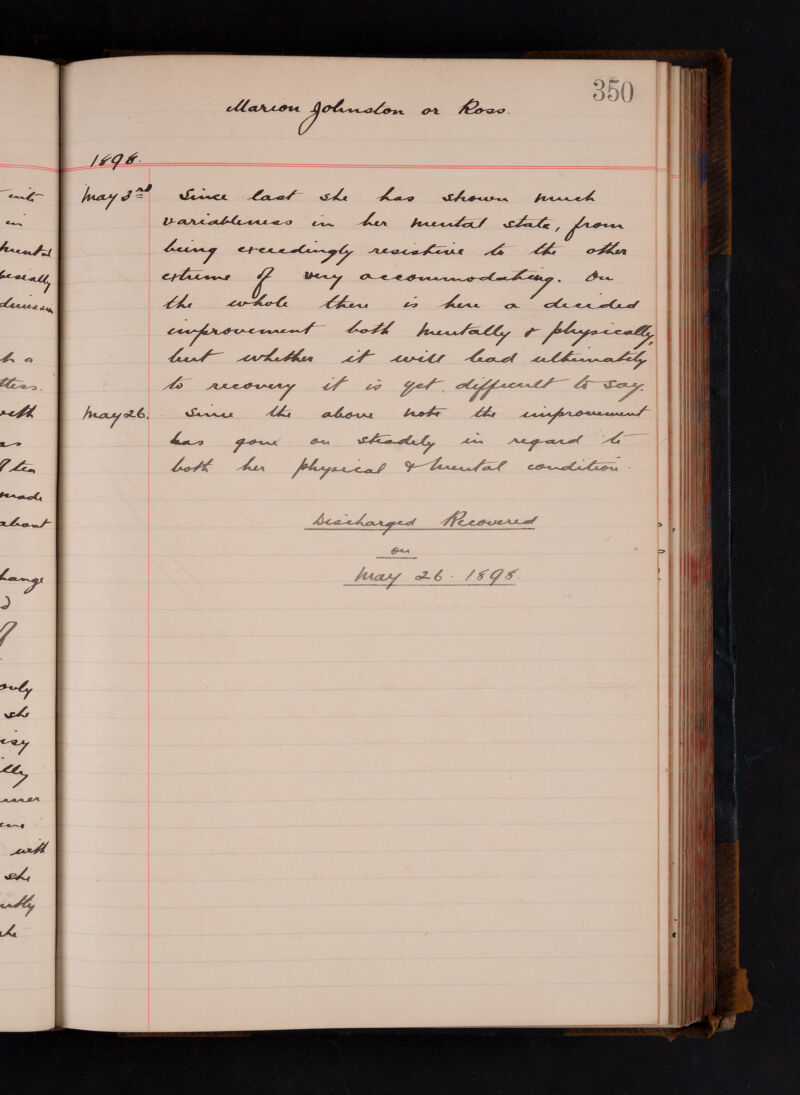 350
Marion Johnston or Ross.
1898.
May 3rd Since last she has shown much
variableness in her mental state, from
being exceedingly resistive to the other
extreme of very accommodating. On
the whole there is here a decided
improvement both mentally & physically,
but whether it will lead ultimately
to recovery it is yet difficult to say.
May 26. Since the above note the improvement
has gone on steadily in regard to
both her physical & mental condition.
Discharged Recovered
on
May 26. 1898.
mental
with
tea
made
about
only
she
with
she